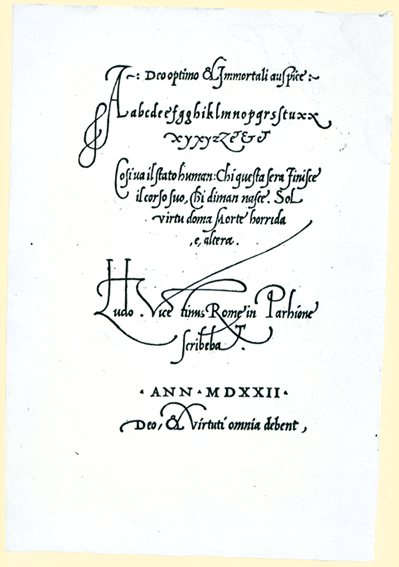 ~: Deo optimo & Immortali auspice :~
A abcdeefgghiklmnopqrsſtuxx
xyxyzZ&&
Cosi va il stato human: Chi questa sera finisce
il corso suo, Chi diman nasce. Sol
virtu doma Morte horrida
, e, altera .
Ludo . Vicentinus Romę in Parhione
scribebat
· ANN · MDXXII ·
Deo, & Virtuti omnia debent,